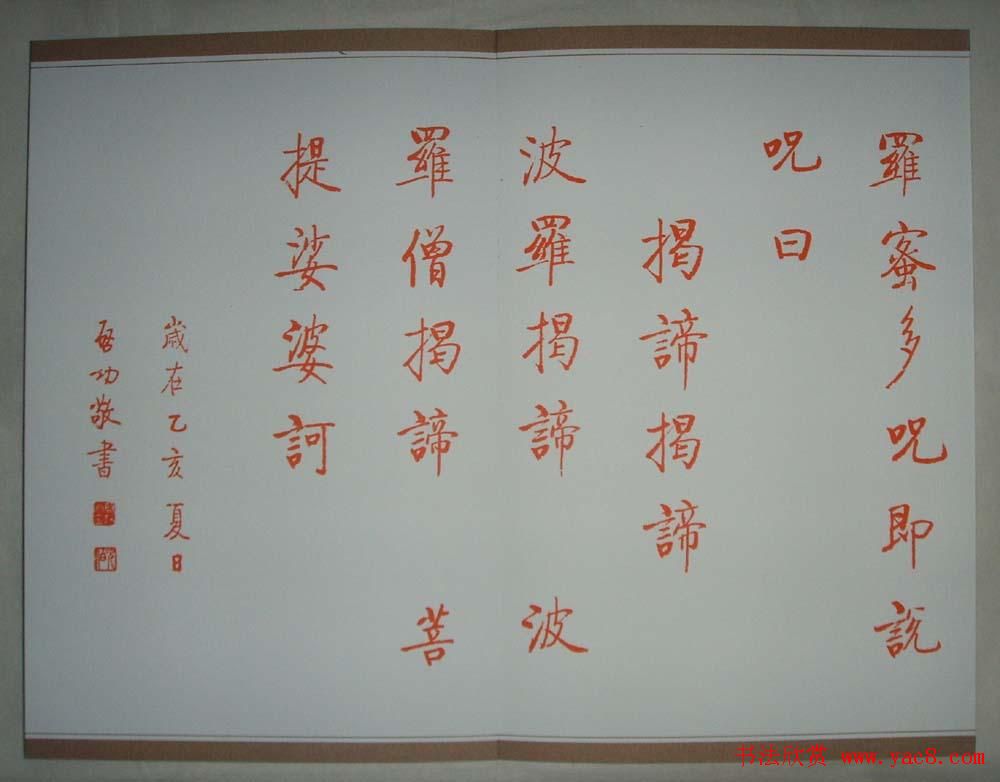 羅蜜多呪即說
呪曰
揭諦揭諦
波羅揭諦 波
羅僧揭諦 菩
提娑婆訶
歲在乙亥夏日
啓功敬書
书法欣赏 www.yac8.com